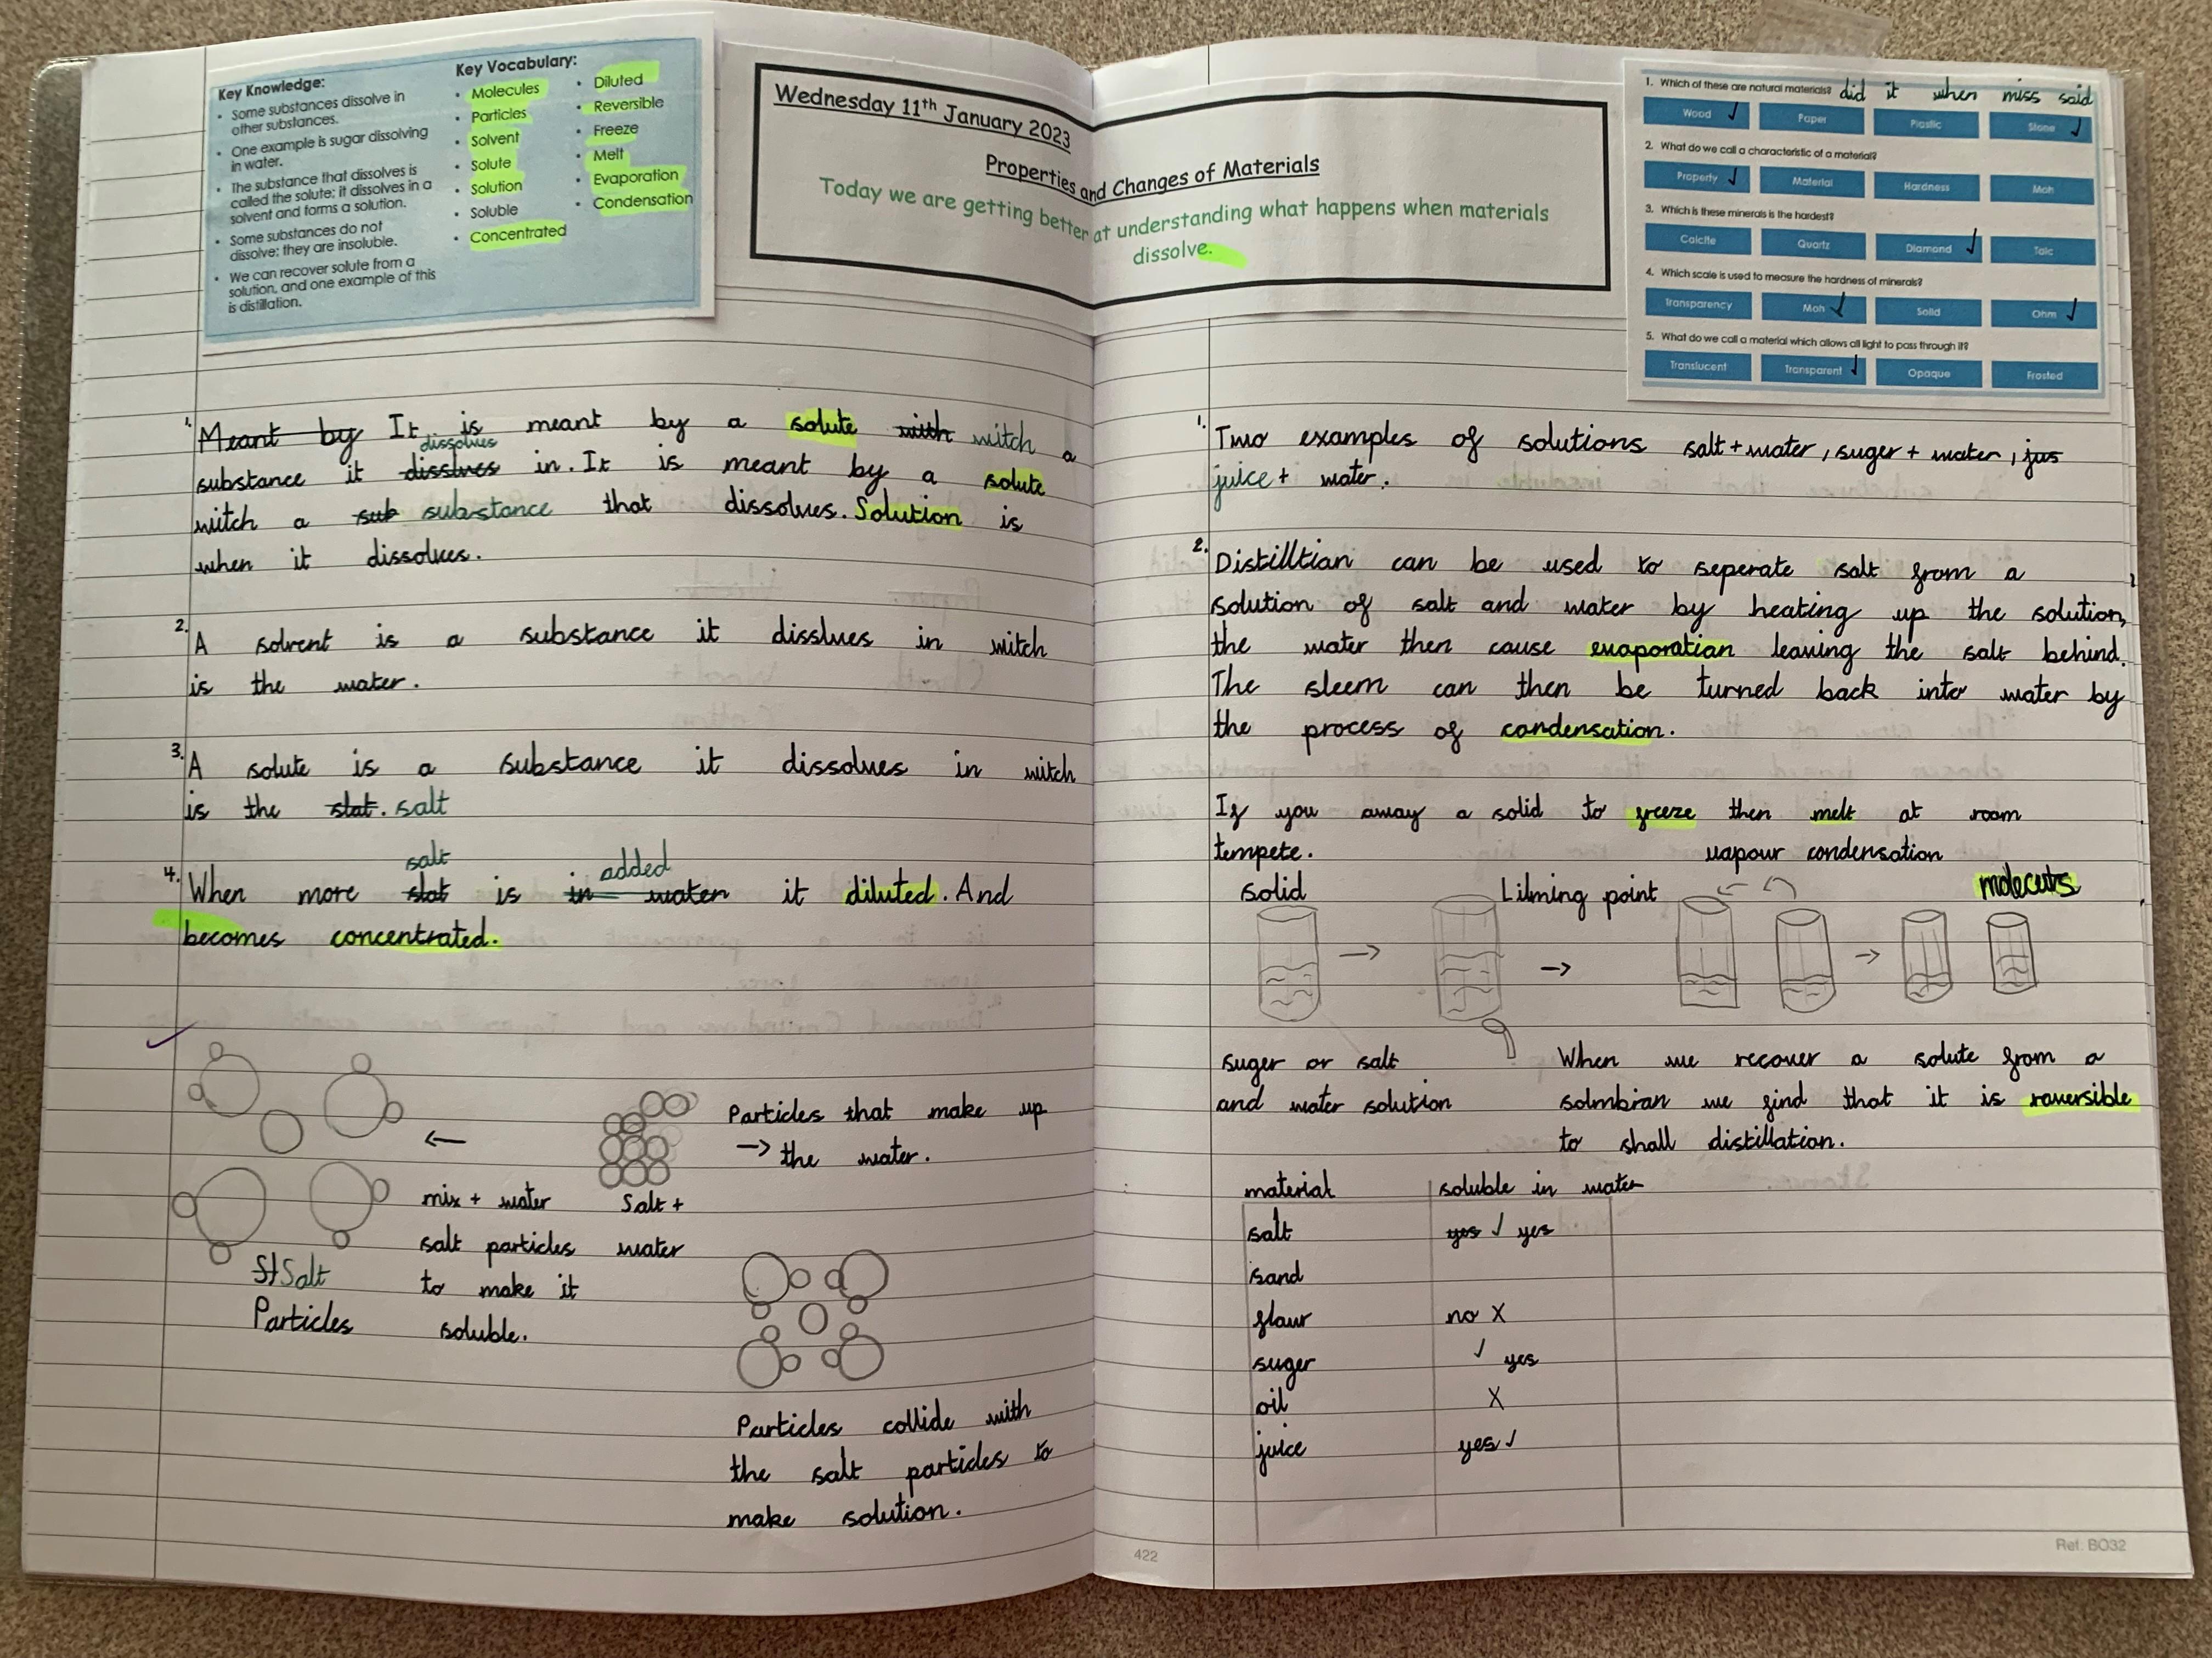 Key Knowledge:
• Some substances dissolve in
other substances.
• One example is sugar dissolving
in water.
• The substance that dissolves is
called the solute; it dissolves in a
solvent and forms a solution.
• Some substances do not
dissolve; they are insoluble.
• We can recover solute from a
solution, and one example of this
is distillation.
Key Vocabulary:
• Molecules
• Particles
• Solvent
• Solute
• Solution
• Soluble
• Concentrated
• Diluted
• Reversible
• Freeze
• Melt
• Evaporation
• Condensation
Wednesday 11th January 2023
Properties and Changes of Materials
Today we are getting better at understanding what happens when materials
dissolve.
1. Meant by It is meant by a solute with witch a
dissolves
substance it disslues in. It is meant by a solute
witch a sub substance that dissolves. Solution is
when it dissolves.
2. A solvent is a substance it disslues in witch
is the water.
3. A solute is a substance it dissolves in witch
is the slat. salt
salt added
4. When more slat is in water it diluted. And
becomes concentrated.
Particles that make up
→ the water.
←
mix + water
salt particles
to make it
soluble.
Salt +
water
St Salt
Particles
Particles collide with
the salt particles to
make solution.
422
1. Which of these are natural materials? did it when miss said
Wood ✓ Paper Plastic Stone ✓
2. What do we call a characteristic of a material?
Property ✓ Material Hardness Moh
3. Which is these minerals is the hardest?
Calcite Quartz Diamond ✓ Talc
4. Which scale is used to measure the hardness of minerals?
Transparency Moh ✓ Solid Ohm ✓
5. What do we call a material which allows all light to pass through it?
Translucent Transparent ✓ Opaque Frosted
1. Two examples of solutions salt + water, suger + water, jus
juice + water.
2. Distilltian can be used to seperate salt from a
solution of salt and water by heating up the solution,
the water then cause evaporatian leaving the salt behind.
The sleem can then be turned back into water by
the process of condensation.
If you away a solid to freeze then melt at room
tempete.
vapour condensation
solid Lilming point molecuts
→ → →
suger or salt
and water solution
When we recover a solute from a
solmbian we find that it is raversible
to shall distillation.
material soluble in water
salt yes ✓ yes
sand
flaur no X
suger ✓ yes
oil X
juice yes ✓
Ref: BO32